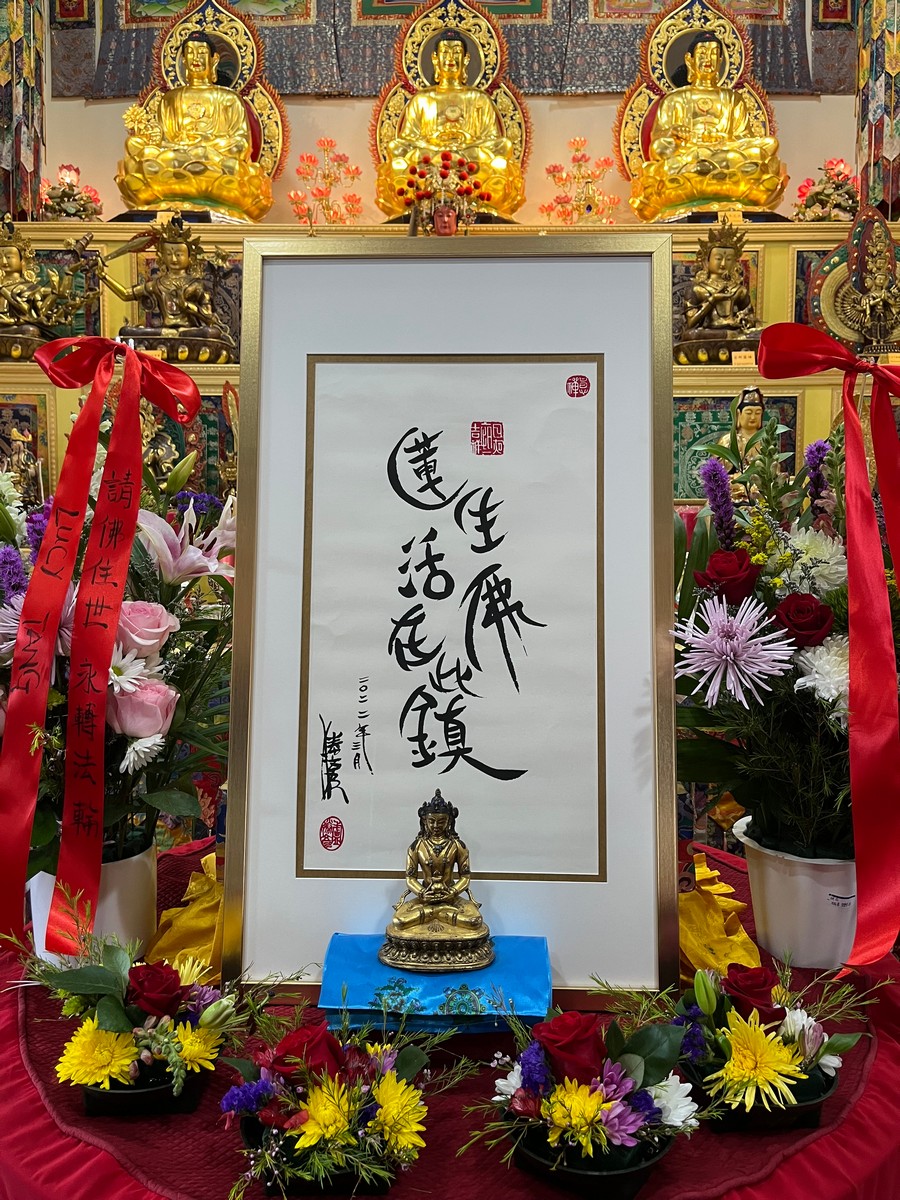 蓮生活佛
在此鎮
二〇二二年三月
請佛住世 永轉法輪
LUCY TANG